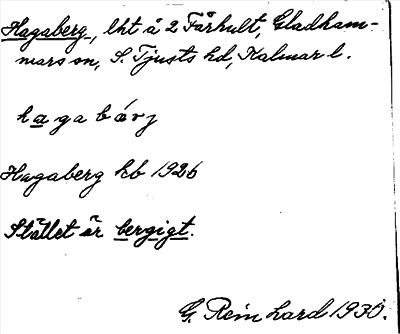 Hagaberg, lht å 2 Fårhult, Gladham-
mars sn, S. Tjusts hd, Kalmar l.
hagabárj
Hagaberg kb 1926
Stället är bergigt.
G. Reinhard 1930.